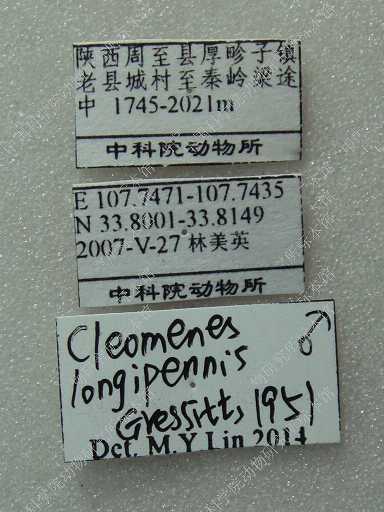 陕西周至县厚畛子镇
老县城村至秦岭梁途
中 1745-2021m
中科院动物所
E 107.7471-107.7435
N 33.8001-33.8149
2007-V-27 林美英
中科院动物所
Cleomenes ♂
longipennis
Gressitt, 1951
Det. M.Y Lin 2014